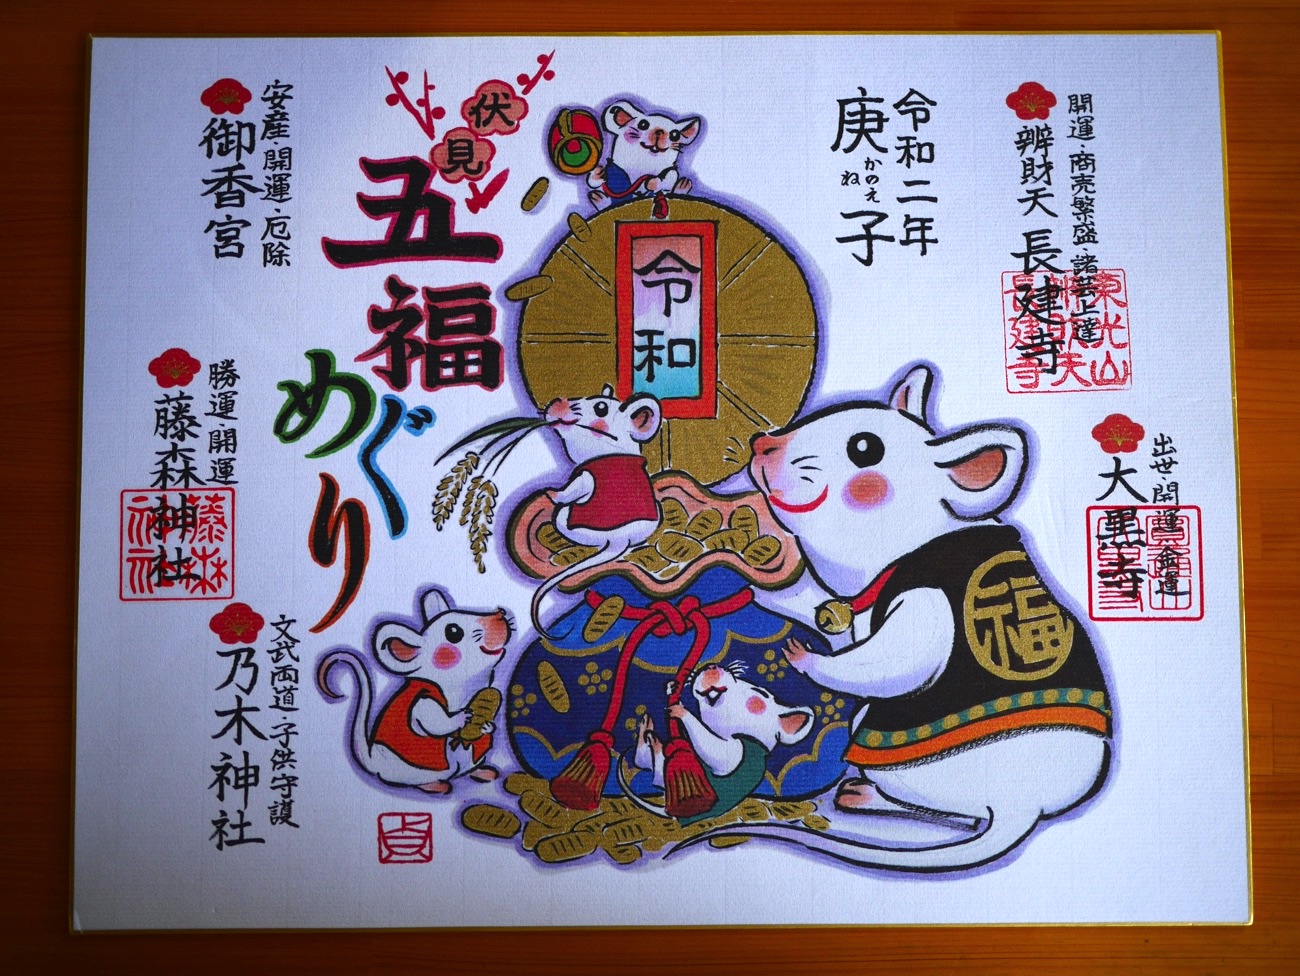 開運・商売繁盛・諸芸上達
辨財天 長建寺
東光山
辨財天
長建寺
出世・開運・金運
大黒寺
令和二年
庚子
かのえ
ね
令和
福
伏見
五福
めぐり
安産・開運・厄除
御香宮
勝運・開運
藤森神社
藤森
神社
文武両道・子供守護
乃木神社